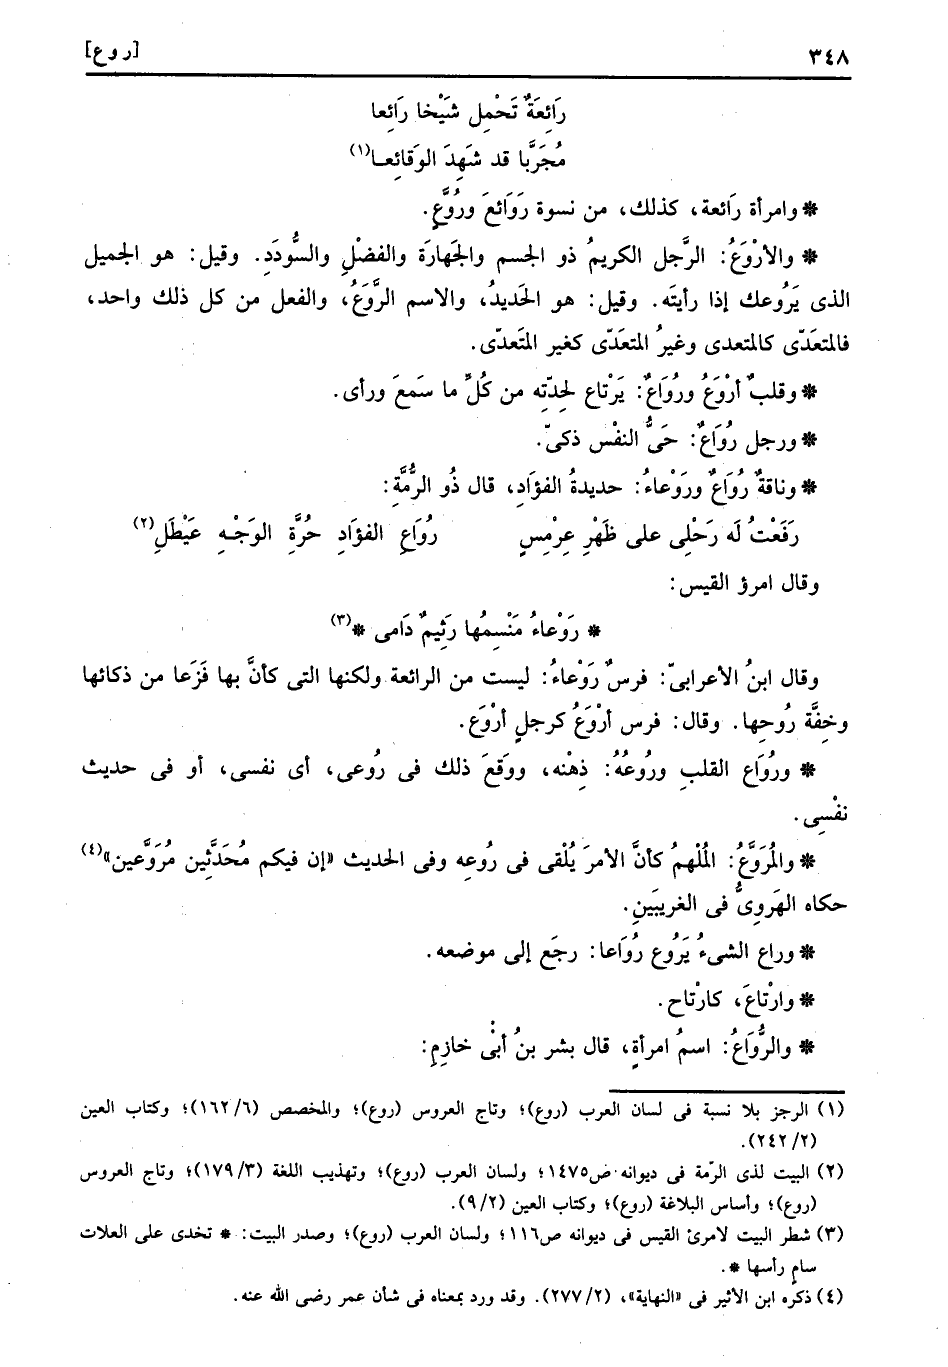 ٣٤٨ [ر و ع]
رَائِعَةٌ تَحْمِل شَيْخا رَائِعا
مُجَرَّبا قد شَهِدَ الوَقائِعـا(١)
* وامرأة رَائعة، كذلك، من نسوة رَوَائعَ ورُوَّعٍ.
* والأرْوَعُ: الرَّجل الكريمُ ذو الجسم والجَهارَة والفضْلِ والسُّودَد. وقيل: هو الجميل
الذى يَرُوعك إذا رأيتَه. وقيل: هو الحَديدُ، والاسم الرَّوَعُ، والفعل من كل ذلك واحد،
فالمتعَدّى كالمتعدى وغيرُ المتعَدّى كغير المتَعدّى.
* وقلبٌ أرْوَعُ ورُوَاعٌ: يَرْتاع لحِدّته من كُلِّ ما سَمعَ ورأى.
* ورجل رُوَاعٌ: حَىُّ النفْس ذكىّ.
* وناقةٌ رُوَاعٌ ورَوْعاءُ: حديدةُ الفؤَادِ، قال ذُو الرُّمَّةِ:
رَفَعْتُ لَه رَحْلِى على ظَهْرِ عِرْمِسٍ رُوَاعِ الفؤَادِ حُرَّةِ الوَجْـهِ عَيْطَلِ(٢)
وقال امرؤ القيس:
* رَوْعاءُ مَنْسِمُها رَثِيمٌ دَامى *(٣)
وقال ابنُ الأعرابىّ: فرسٌ رَوْعاءُ: ليست من الرائعة ولكنها التى كأنَّ بها فَزَعا من ذكائها
وخِفَّة رُوحِها. وقال: فرس أرْوَعُ كرجلٍ أرْوَع.
* ورُوَاع القلبِ ورُوعُهُ: ذِهْنه، ووَقعَ ذلك فى رُوعى، أى نفسى، أو فى حديث
نفْسِى.
* والمُرَوَّعُ: المُلْهمُ كأنَّ الأمرَ يُلْقى فى رُوعِه وفى الحديث «إن فيكم مُحَدَّثين مُرَوَّعين»(٤)
حكاه الهَروِىُّ فى الغريبَينِ.
* وراع الشىءُ يَرُوع رُوَاعا: رجَع إلى موضعه.
* وارْتاعَ، كارْتاح.
* والرُّوَاعُ: اسمُ امرأةٍ، قال بشر بنُ أبْى خازِمٍ:
(١) الرجز بلا نسبة فى لسان العرب (روع)؛ وتاج العروس (روع)؛ والمخصص (٦/١٦٢)؛ وكتاب العين
(٢/٢٤٢).
(٢) البيت لذى الرّمة فى ديوانه ص١٤٧٥؛ ولسان العرب (روع)؛ وتهذيب اللغة (٣/١٧٩)؛ وتاج العروس
(روع)؛ وأساس البلاغة (روع)؛ وكتاب العين (٢/٩).
(٣) شطر البيت لامرئ القيس فى ديوانه ص١١٦؛ ولسان العرب (روع)؛ وصدر البيت: * تخدى على العلات
سامٍ رأسها *.
(٤) ذكره ابن الأثير فى «النهاية»، (٢/٢٧٧). وقد ورد بمعناه فى شأن عمر رضى الله عنه.